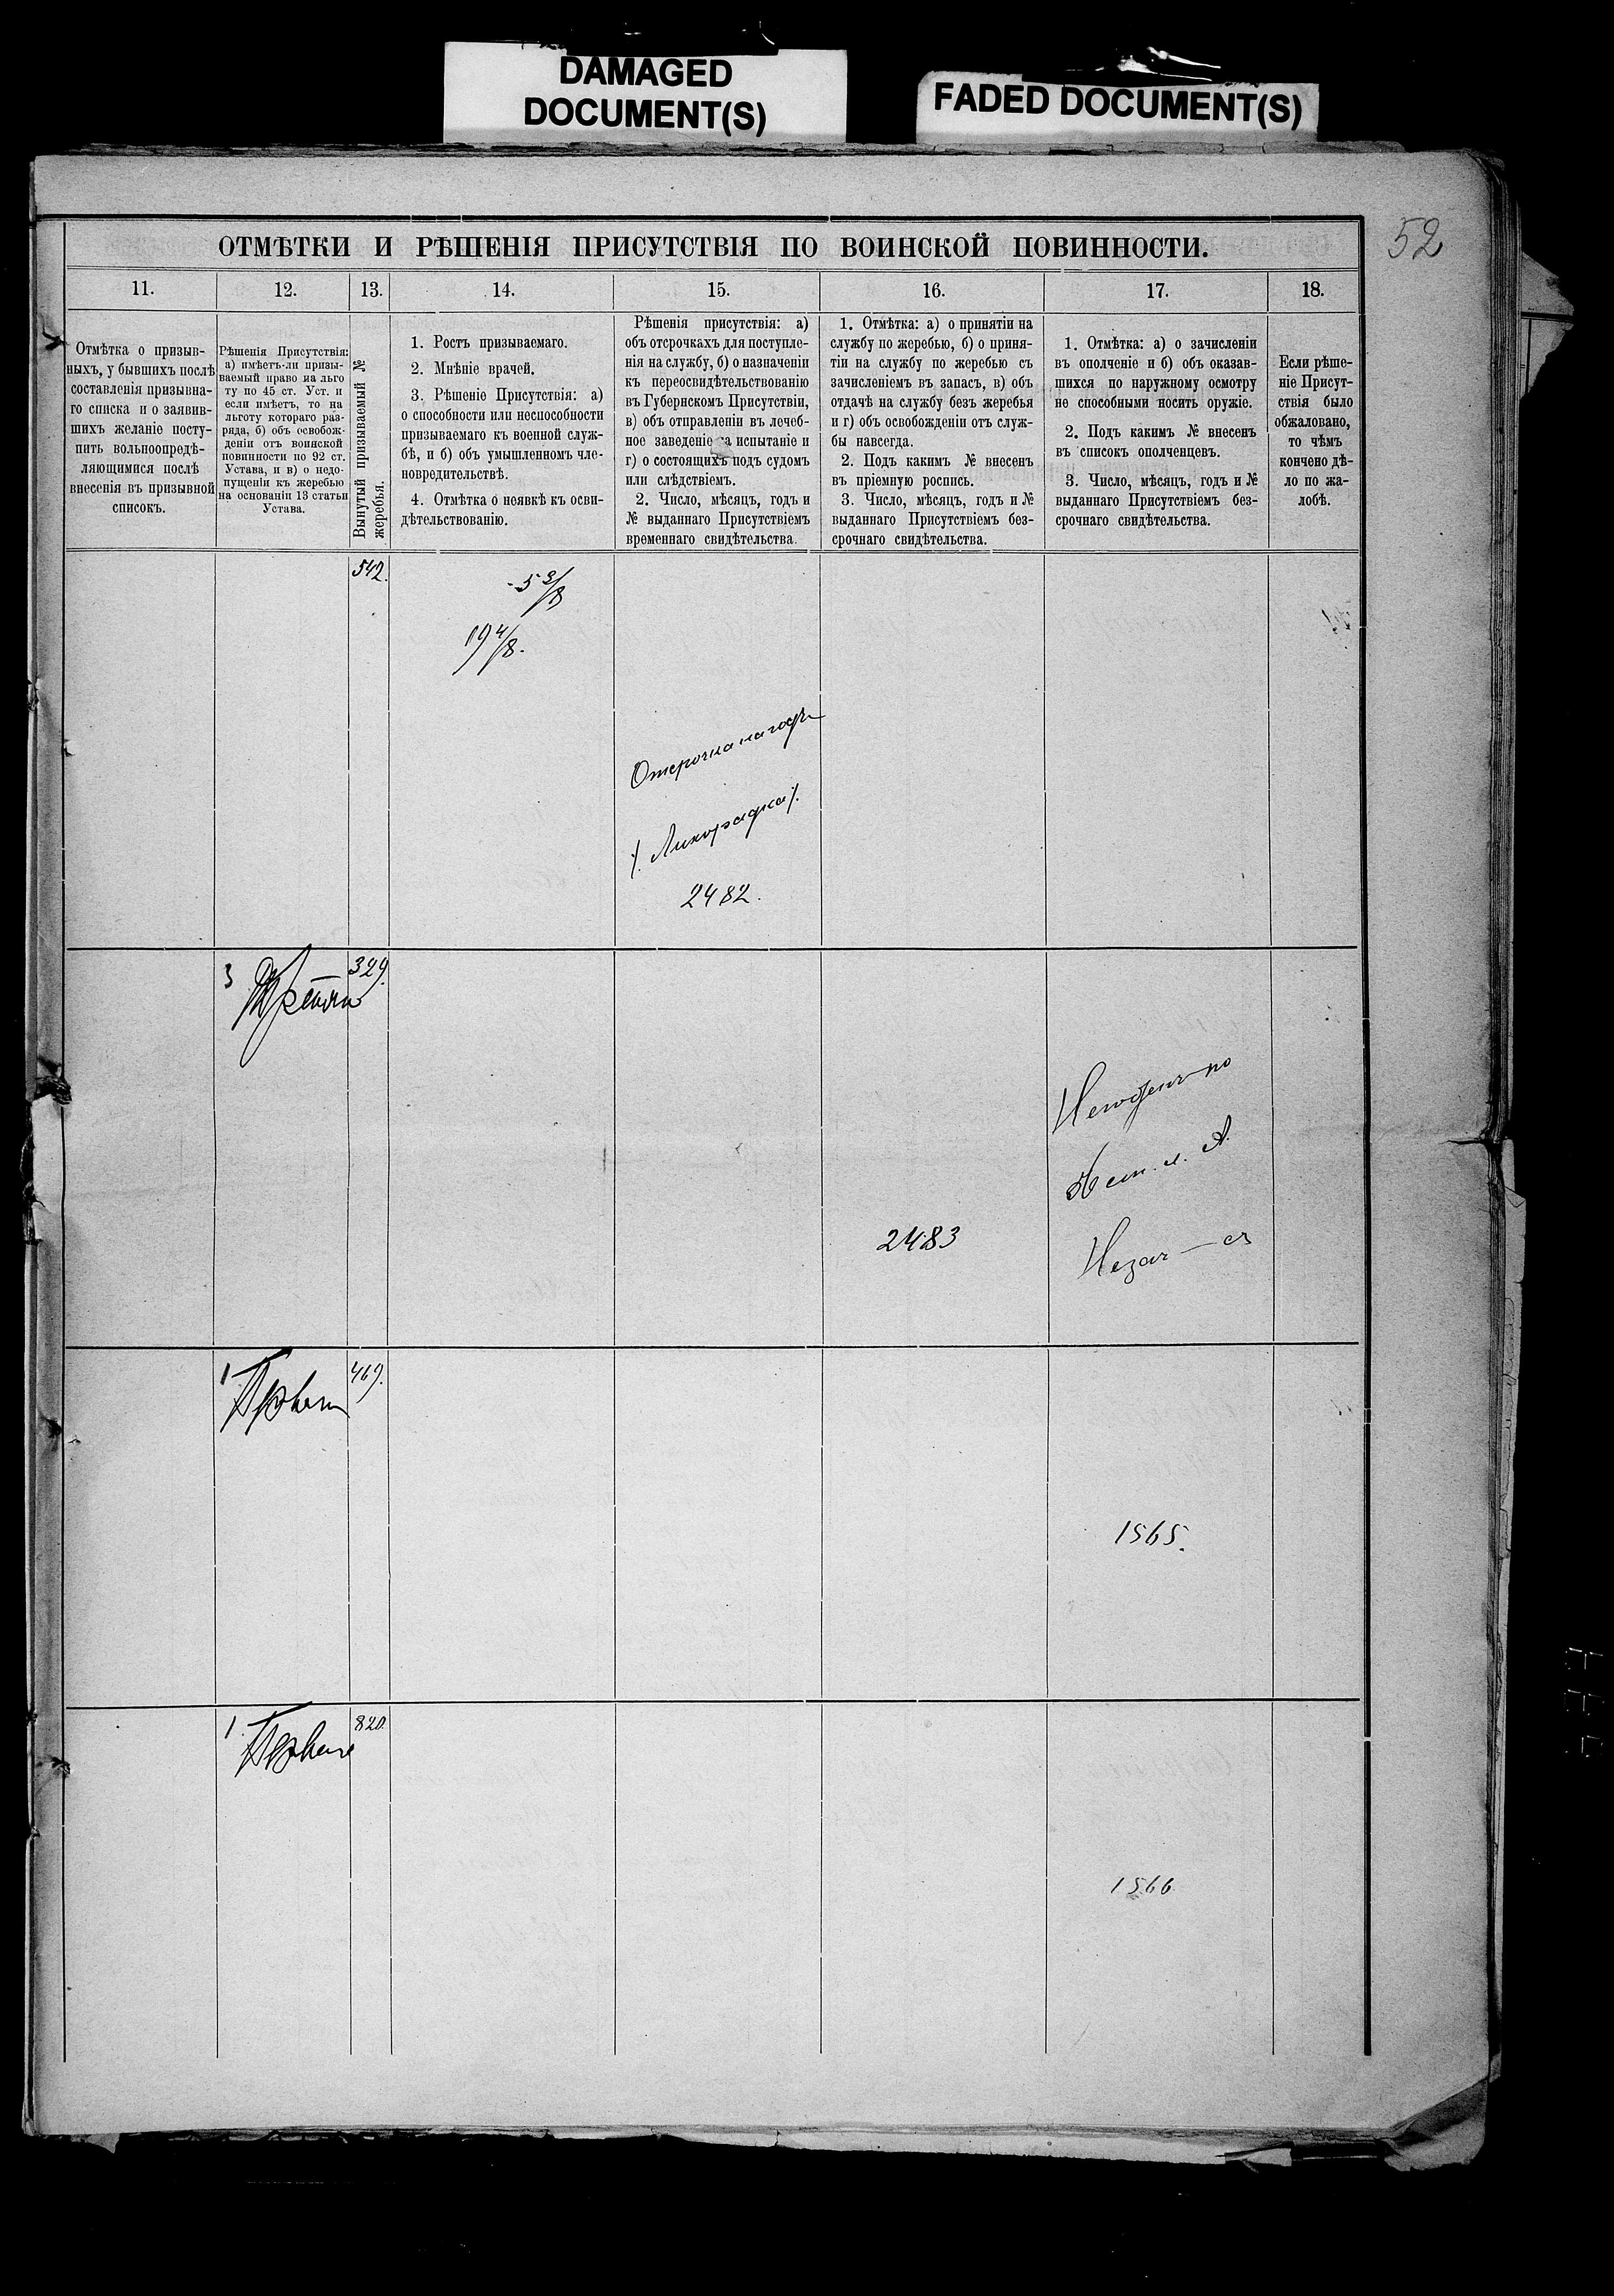 DAMAGED
DOCUMENT(S)
FADED DOCUMENT(S)
52
ОТМѢТКИ И РѢШЕНІЯ ПРИСУТСТВІЯ ПО ВОИНСКОЙ ПОВИННОСТИ.
11.
12.
13.
14.
15.
16.
17.
18.
Отмѣтка о призыв-
ныхъ, у бывшихъ послѣ
составленія призывна-
го списка и о заявив-
шихъ желаніе посту-
пить вольноопредѣ-
ляющимися послѣ
внесенія въ призывной
списокъ.
Рѣшенія Присутствія:
а) имѣетъ-ли призы-
ваемый право на льго
ту по 45 ст. Уст. и
если имѣетъ, то на
льготу котораго раз-
ряда, б) объ освобож-
деніи отъ воинской
повинности по 92 ст.
Устава, и в) о недо-
пущеніи къ жеребью
на основаніи 13 статьи
Устава.
Вынутый призываемый №
жеребья.
1. Ростъ призываемаго.
2. Мнѣніе врачей.
3. Рѣшеніе Присутствія: а)
о способности или неспособности
призываемаго къ военной служ-
бѣ, и б) объ умышленномъ чле-
новредительствѣ.
4. Отмѣтка о неявкѣ къ осви-
дѣтельствованію.
Рѣшенія присутствія: а)
объ отсрочкахъ для поступле-
нія на службу, б) о назначеніи
къ переосвидѣтельствованію
въ Губернскомъ Присутствіи,
в) объ отправленіи въ лечеб-
ное заведеніе на испытаніе и
г) о состоящихъ подъ судомъ
или слѣдствіемъ.
2. Число, мѣсяцъ, годъ и
№ выданнаго Присутствіемъ
временнаго свидѣтельства.
1. Отмѣтка: а) о принятіи на
службу по жеребью, б) о приня-
тіи на службу по жеребью съ
зачисленіемъ въ запасъ, в) объ
отдачѣ на службу безъ жеребья
и г) объ освобожденіи отъ служ-
бы навсегда.
2. Подъ какимъ № внесенъ
въ пріемную роспись.
3. Число, мѣсяцъ, годъ и №
выданнаго Присутствіемъ без-
срочнаго свидѣтельства.
1. Отмѣтка: а) о зачисленіи
въ ополченіе и б) объ оказав-
шихся по наружному осмотру
не способными носить оружіе.
2. Подъ какимъ № внесенъ
въ списокъ ополченцевъ.
3. Число, мѣсяцъ, годъ и №
выданнаго Присутствіемъ без-
срочнаго свидѣтельства.
Если рѣше-
ніе Присут-
ствія было
обжаловано,
то чѣмъ
кончено дѣ-
ло по жа-
лобѣ.
542.
5 3/8
19 4/8.
Отсрочка на годъ
/. Лихорадка /.
2482.
3
329.
2483
1
469.
1565.
1.
820.
1566